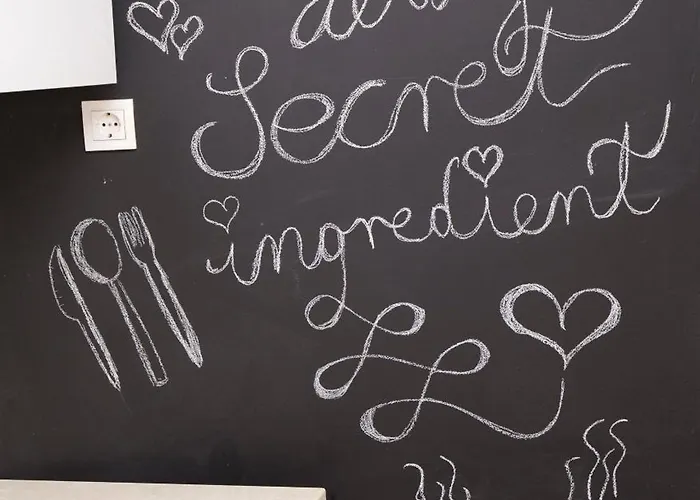 Secret
ingredient